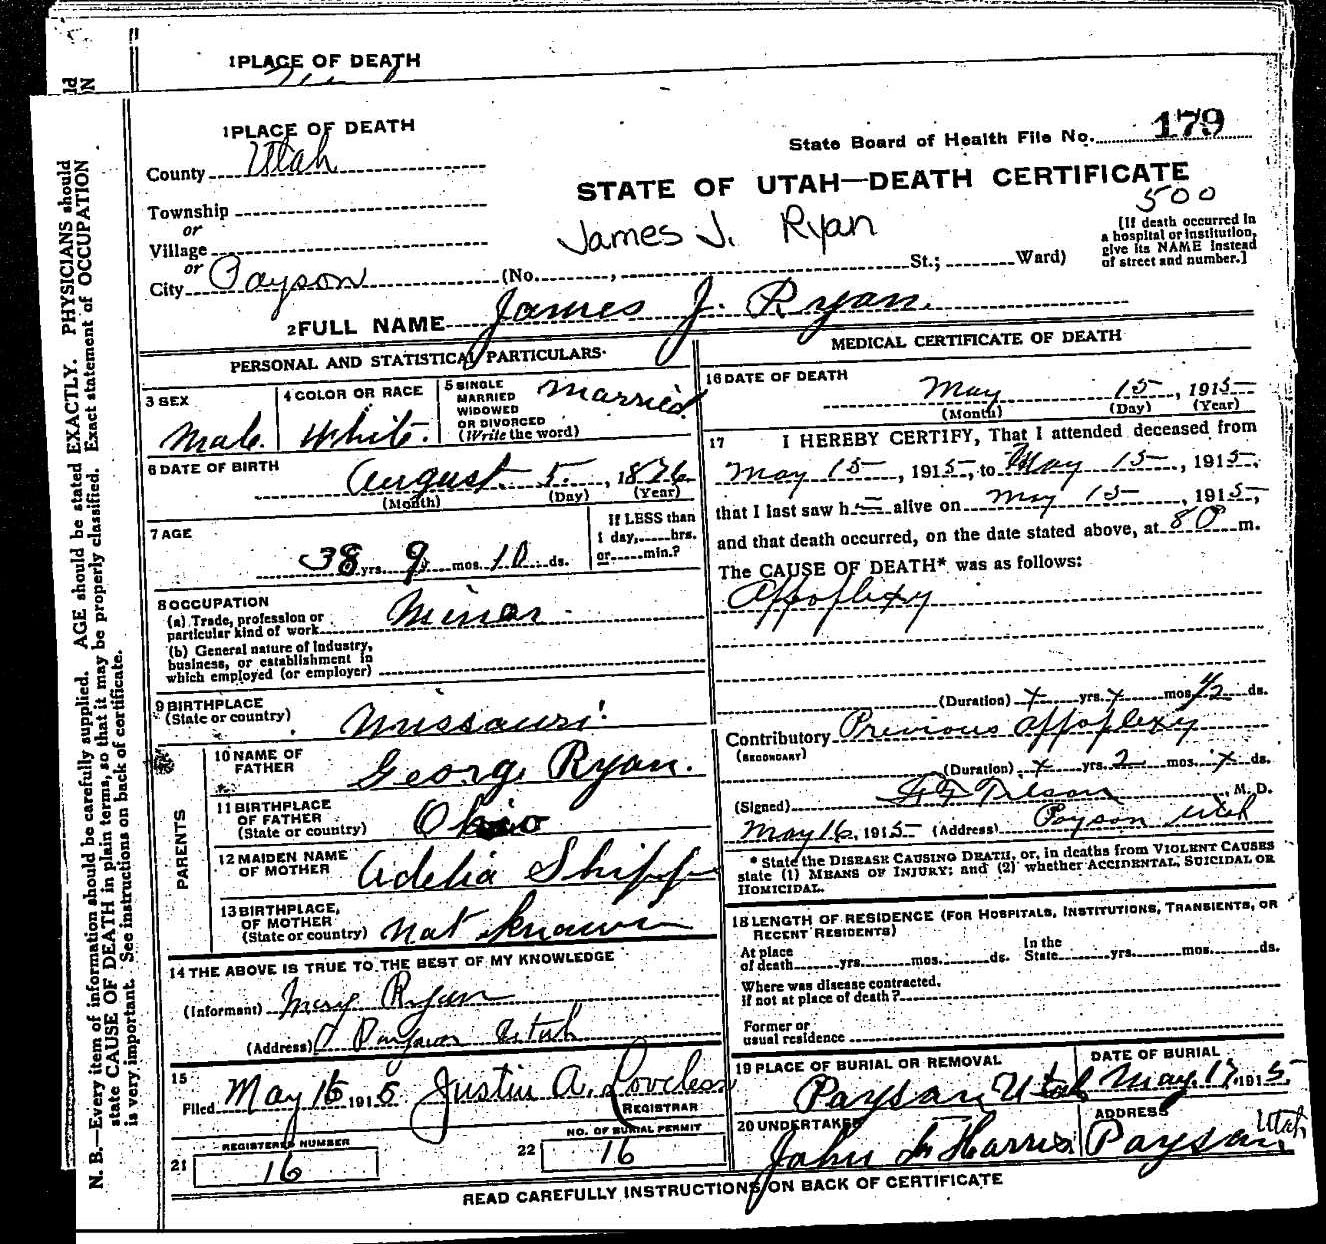 1 PLACE OF DEATH
1 PLACE OF DEATH
State Board of Health File No. 179
County Utah
STATE OF UTAH—DEATH CERTIFICATE
500
Township
or
Village
or
City Payson (No. , St.; Ward)
James J. Ryan
[If death occurred in
a hospital or institution,
give its NAME instead
of street and number.]
2 FULL NAME James J. Ryan.
PERSONAL AND STATISTICAL PARTICULARS
3 SEX
Male.
4 COLOR OR RACE
White.
5 SINGLE
MARRIED
WIDOWED
OR DIVORCED
(Write the word)
Married
6 DATE OF BIRTH
August 5, 1876
(Month) (Day) (Year)
7 AGE
38 yrs. 9 mos. 10 ds.
If LESS than
1 day, hrs.
or min.?
8 OCCUPATION
(a) Trade, profession or
particular kind of work Miner
(b) General nature of industry,
business, or establishment in
which employed (or employer)
9 BIRTHPLACE
(State or country) Missouri
PARENTS
10 NAME OF
FATHER George Ryan.
11 BIRTHPLACE
OF FATHER
(State or country) Ohio
12 MAIDEN NAME
OF MOTHER Adelia Shipp
13 BIRTHPLACE,
OF MOTHER
(State or country) not known
14 THE ABOVE IS TRUE TO THE BEST OF MY KNOWLEDGE
(Informant) Mary Ryan
(Address) Payson Utah
15
Filed May 16 1915 Justin A. Loveless
REGISTRAR
REGISTERED NUMBER
21 16
NO. OF BURIAL PERMIT
22 16
MEDICAL CERTIFICATE OF DEATH
16 DATE OF DEATH
May 15, 1915
(Month) (Day) (Year)
17 I HEREBY CERTIFY, That I attended deceased from
May 15, 1915, to May 15, 1915,
that I last saw h alive on May 15, 1915,
and that death occurred, on the date stated above, at 8 P m.
The CAUSE OF DEATH* was as follows:
Appoplexy
(Duration) x yrs. x mos. 1/2 ds.
Contributory Previous appoplexy
(SECONDARY)
(Duration) x yrs. 2 mos. x ds.
(Signed) Tilson, M. D.
May 16, 1915 (Address) Payson Utah
* State the DISEASE CAUSING DEATH, or, in deaths from VIOLENT CAUSES
state (1) MEANS OF INJURY; and (2) whether ACCIDENTAL, SUICIDAL OR
HOMICIDAL.
18 LENGTH OF RESIDENCE (FOR HOSPITALS, INSTITUTIONS, TRANSIENTS, OR
RECENT RESIDENTS)
At place
of death yrs. mos. ds.
In the
State yrs. mos. ds.
Where was disease contracted,
if not at place of death?
Former or
usual residence
19 PLACE OF BURIAL OR REMOVAL
Payson, Utah
DATE OF BURIAL
May. 17, 1915
20 UNDERTAKER
John Harris
ADDRESS
Payson Utah
READ CAREFULLY INSTRUCTIONS ON BACK OF CERTIFICATE
N. B.—Every item of information should be carefully supplied. AGE should be stated EXACTLY. PHYSICIANS should
state CAUSE OF DEATH in plain terms, so that it may be properly classified. Exact statement of OCCUPATION
is very important. See instructions on back of certificate.